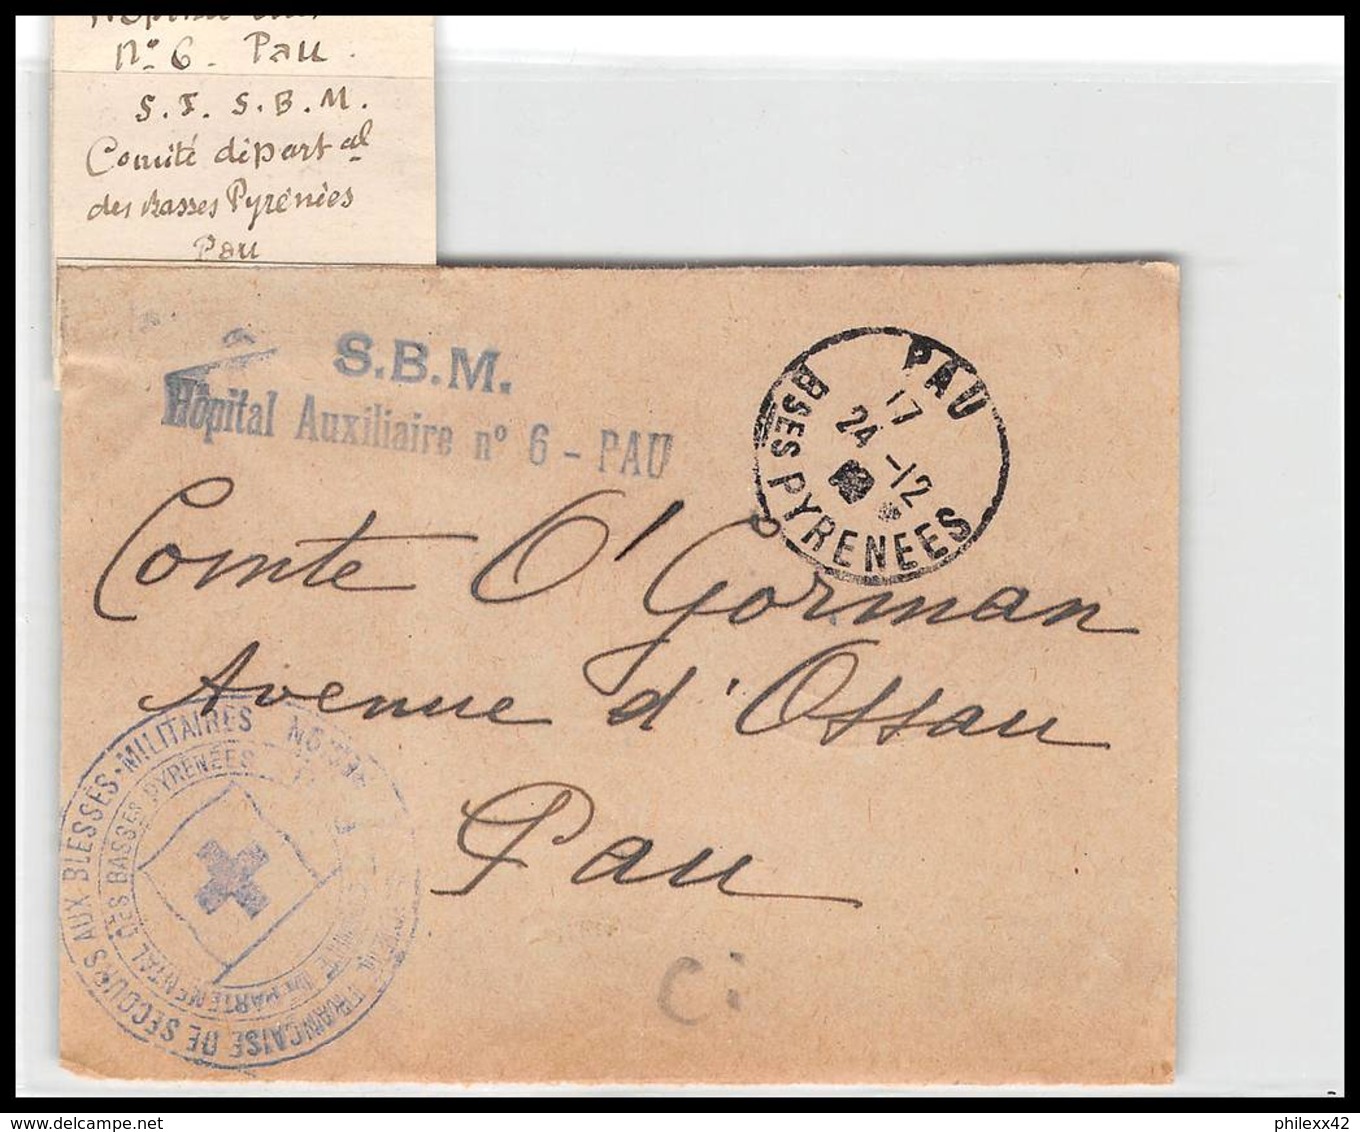 n° 6 - Pau
S. F. S. B. M.
Comité départal
des Basses Pyrénées
Pau
S.B.M.
Hôpital Auxiliaire n° 6 - PAU
PAU
17
24 -12
BSES PYRENEES
Comte O'Gorman
Avenue d'Ossau
Pau
FRANÇAISE DE SECOURS AUX BLESSÉS MILITAIRES
DES BASSES PYRÉNÉES
Ci
philexx42